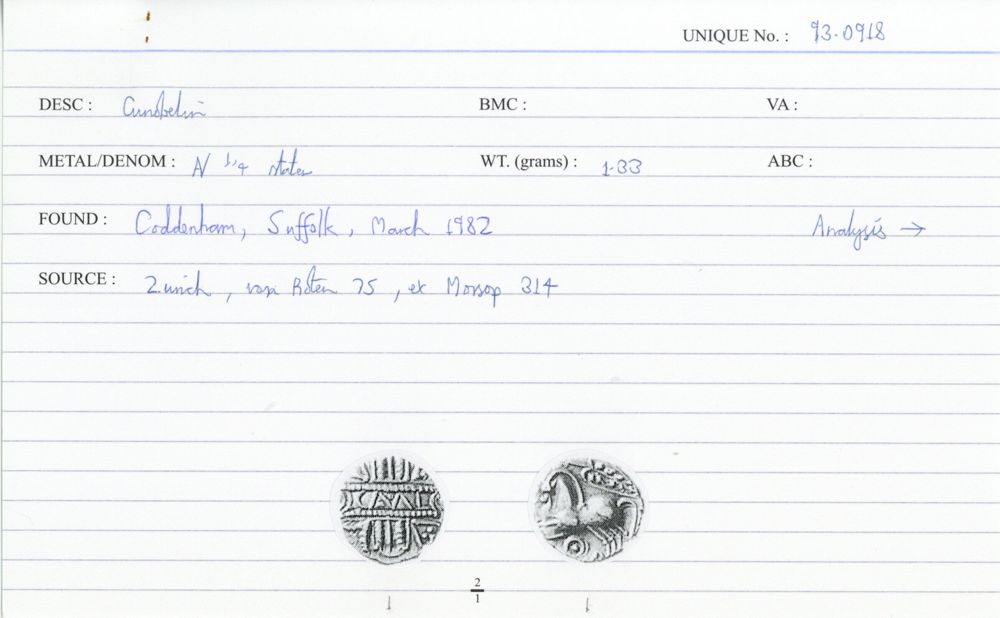 UNIQUE No. : 93.0918
DESC : Cunobelin BMC : VA :
METAL/DENOM : AV 1/4 stater WT. (grams) : 1.33 ABC :
FOUND : Coddenham, Suffolk, March 1982 Analysis →
SOURCE : Zurich, von Roten 75, ex Mossop 314
2
1